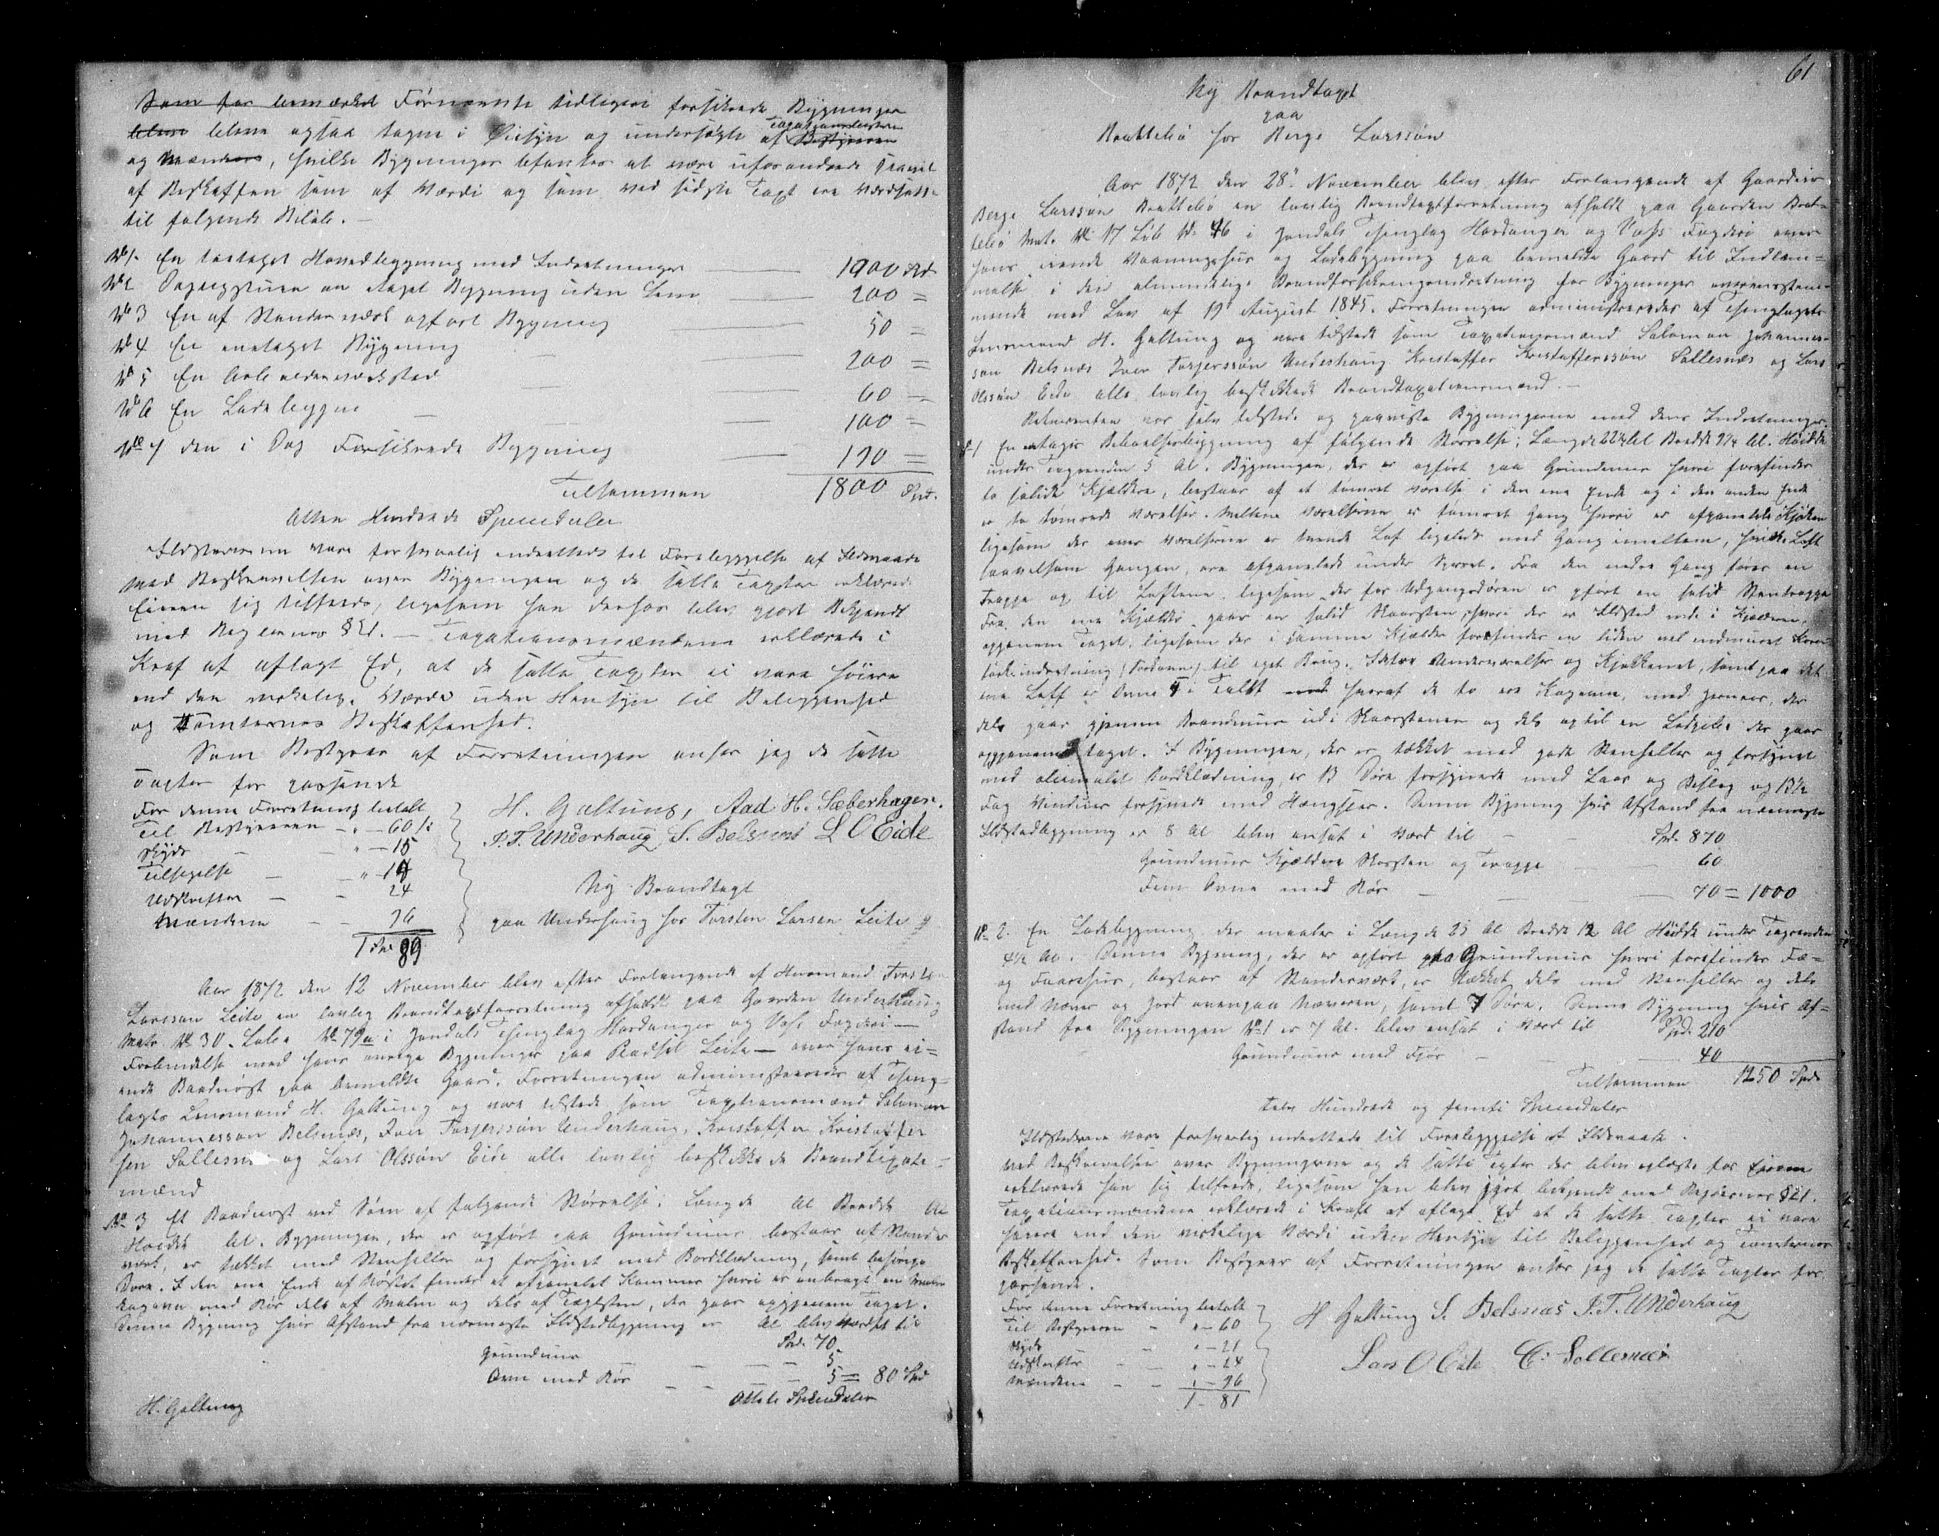 Som før bemærket Førnævnte tidligere forsikrede Bygninger
bleve bleve ogsaa tagne i Øiesyn og undersøgte af Taxationsmændene Bestyreren
og Mændene, hvilke Bygninger befantes at være uforandrede saavel
af Beskaffen som af Værdi og som ved sidste Taxt ere værdsatte
til følgende Beløb. —
No 1. En toetaget Hovedbygning med Indretninger 1000 Spd.
No 2 en Etages Bygning uden Lem 200 =
No 3 En af Standerværk opført Bygning 50 =
No 4 En enetaget Bygning 200 =
No 5 En 60 =
No 6 En Ladebygning 100 =
No 7 den i Dag Forsikrede Bygning 190 =
Tilsammen 1800 Spd.
Atten Hundrede Speciedaler
Ildstederne vare forsvarlig indrettede til Forebyggelse af Ildsvaade
med Beskrivelsen over Bygningen og de satte Taxter erklærede
Eieren sig tilfreds, ligesom han derhos blev gjort Bekjendt
med Reglernes § 21. — Taxationsmændene erklærede i
Kraf af aflagt Ed, at de satte Taxter ei vare høiere
end den virkelige Værdi uden Hensyn til Beliggenhed
og Tomternes Beskaffenhed.
Som Bestyrer af Forretningen anser jeg de satte
Taxter for passende
For denne Forretning betalt
Til Bestyreren - " - 60 s:
Skyds - " - 15
Tilsigelse - " 14
Udskriften - - 24
Mændene - - 96
1 Spd 89
H. Galtung, Aad H. Sæberhagen.
I. T. Underhaug S. Belsnæs L O Eide
Ny Brandtaxt
paa Underhaug hos Torsten Larsen Leite
Aar 1872 den 12 November blev efter Forlangende af Huusmand Torsten
Larssøn Leite en lovlig Brandtaxtforretning afholdt paa Gaarden Underhaug
Matr No 30. Løbe No 79a i Jondals Thinglag Hardanger og Vos Fogderi —
Forbindelse med hans øvrige Bygninger paa Pladsen Leite — over hans ei-
ende Baadnøst paa bemeldte Gaard. Forretningen administreredes af Thing-
lagets Lensmand H. Galtung og vare tilstede som Taxtionsmænd Salomon
Johannessøn Belsnæs, Iver Torjerssøn Underhaug, Kristoffer Kristoffer
sen Sollesnæs og Lars Olssøn Eide alle lovlig beskikkede Brandtaxations-
mænd
No 3 Et Baadnøst ved Søen af følgende Størrelse: Længde Al Bredde Al
Høide Al. Bygningen, der er opført paa Grundmur bestaar af Stander
værk, er tækket med Stenheller og forsynet med Bordklædning, samt behørige
Døre. I den ene Ende af Nøstet findes et afpanelet Kammer hvori er anbragt en
kagovn med Rør dels af Malm og dels af Teglsten, der gaar opigjennem Taget.
Denne Bygning hvis Afstand fra nærmeste Ildstedbygning er Al blev værdsat til
Spd. 70.
Grundmur — — — 5
Ovn med Rør — — — 5 = 80 Spd
Otteti Speciedaler
H. Galtung
61
Ny Brandtaxt
paa
Brattebø hos Berge Larssøn
Aar 1872 den 28de November blev efter Forlangende af Gaardeier
Berge Larssøn Brattebø en lovlig Brandtaxtforretning afholdt paa Gaarden Brat-
tebø Matr. No 17 Løb No 46 i Jondals Thinglag Hardanger og Voss Fogderi over
hans eiende Vaaningshus og Ladebygning paa bemeldte Gaard til Indlem-
melse i den almindelige Brandforsikringsindretning for Bygninger overensstem-
mende med Lov af 19 August 1845. Forretningen administreredes af Thinglagets
Lensmand H. Galtung og vare tilstede som Taxationsmænd Salomon Johannes-
søn Belsnæs Iver Torjerssøn Underhaug Kristoffer Kristofferssøn Sollesnæs og Lars
Olssøn Eide alle lovlig beskikkede Brandtaxationsmænd. —
Rekvirenten var selv tilstede og paaviste Bygningerne med dens Indretninger.
No 1 En etages Beboelsesbygning af følgende Størrelse: Længde 22 1/2 Al Bredde 9 1/4 Al. Høide
under Tagrenden 5 Al. Bygningen, der er opført paa Grundmur hvori forefindes
to solide Kjældere, bestaar af et tømret Værelse i den ene Ende og i den anden Ende
er to tømrede Værelser. Mellem Værelserne er tømret Gang hvori er afpanelet Kjøken
ligesom der over Værelserne er tvende Loft ligeledes med Gang imellem, hvilke Loft
saavelsom Gangen, ere afpanelede under Sperret. Fra den nedre Gang fører en
Trappe op til Loftene, ligesom der for Udgangsdøren er opført en solid Stentrappe
Fra den ene Kjelder gaar en solid Skorsten, hvori der er Ildsted nede i Kjelderen,
opgjennem Taget, ligesom der i samme Kjelder forefindes en liden vel indmuret
til eget Brug. I Værelser og Kjøkkenet, samt paa det
ene Loft er Ovne 5 i Tallet hvoraf de to ere Kagovne, med der
dels gaar gjennem Brandmur ud i Skorstenen og dels op til en der gaar
opgjennem Taget. I Bygningen, der er tækket med gode Stenheller og forsynet
med oliemalet Bordklædning, er 13 Døre forsynede med Laas og Beslag og 13 1/2
Fag Vinduer forsynede med Hængsler. Denne Bygning hvis Afstand fra nærmeste
Ildstedbygning er 8 Al blev ansat i Værd til - Spd. 870
Grundmur Kjældere Skorsten og Trappe — 60
Fem Ovne med Rør — — 70 = 1000
No 2. En Ladebygning der maaler i Længde 25 Al Bredde 12 Al Høide under Tagrenden
4 1/2 Al. Denne Bygning, der er opført paa Grundmur hvori forefindes Fæ-
og Faarehus, bestaar af Standerværk, er tækket dels med Stenheller og dels
med Næver og Jord ovenpaa Næveren, samt 7 Døre. Denne Bygning hvis Af-
stand fra Bygningen No 1 er 7 Al. blev ansat i Værd til Spd. 210
Grundmur med Fjøs — 40
Tilsammen 1250 Spd
Tolv Hundrede og femti Speciedaler
Ildstederne vare forsvarlig indrettede til Forebyggelse af Ildsvaade.
Ved Beskrivelsen over Bygningerne og de satte Taxter der blev oplæste for Eieren
erklærede han sig tilfreds, ligesom han blev gjort bekjendt med Reglernes § 21.
Taxationsmændene erklærede i Kraft af aflagt Ed at de satte Taxter ei vare
høiere end den virkelige Værdi uden Hensyn til Beliggenhed og Tomternes
Beskaffenhed. Som Bestyrer af Forretningen anser jeg de satte Taxter for
passende.
For denne Forretning betalt
Til Bestyreren " - 60
Skyds " - 21
Udskrifter - " - 24
Mændene - - " - 96
1 - 81
H Galtung S. Belsnæs I. T. Underhaug
Lars O Eide C: Sollesnæs